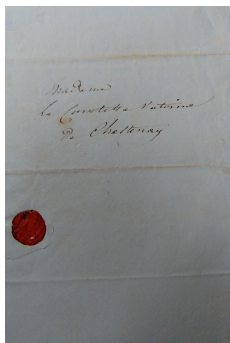 Madame
La Comtesse Victorine
de Chastenay